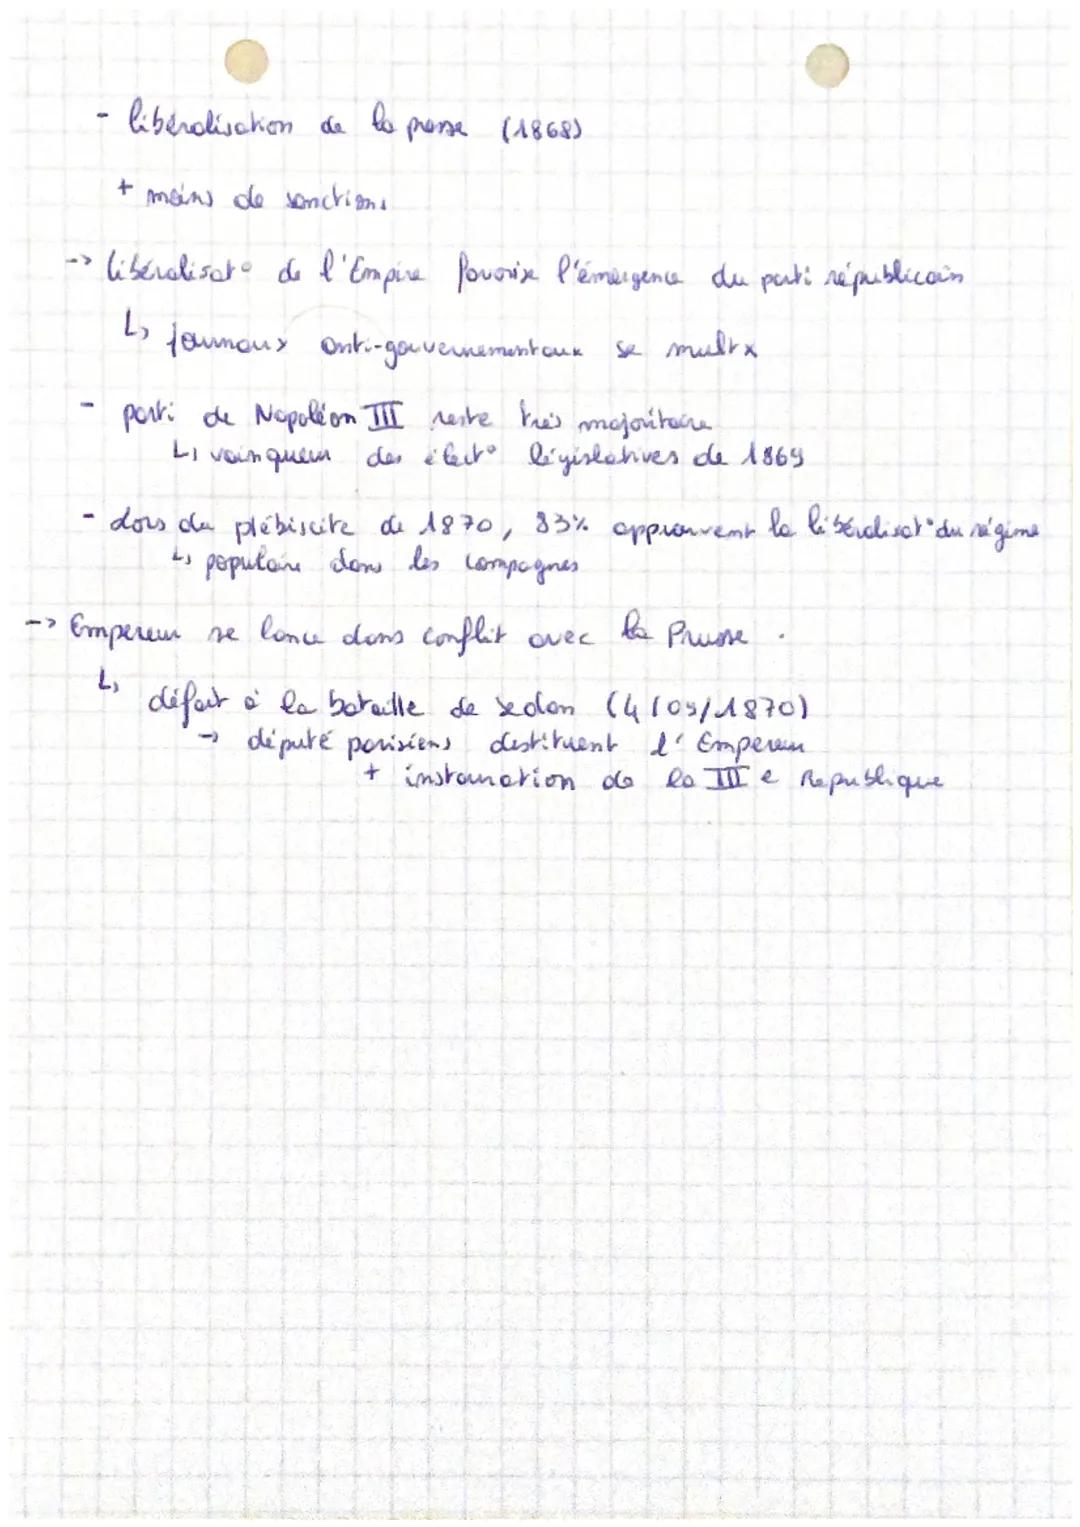 - libéralisation de la presse (1868)
+ moins de sanctions
-> libéralisat° de l'Empire favorise l'émergence du parti républicain
↳ journaux anti-gouvernementaux se multx
- parti de Napoléon III reste très majoritaire
↳ vainqueur des élect° législatives de 1869
- Lors du plébiscite de 1870, 83% approuvent la libéralisat° du régime
↳ populaire dans les campagnes
-> Empereur se lance dans conflit avec la Prusse .
↳ défait à la bataille de sedan (4/09/1870)
→ député parisiens destituent l'Empereur
+ instauration de la III e République